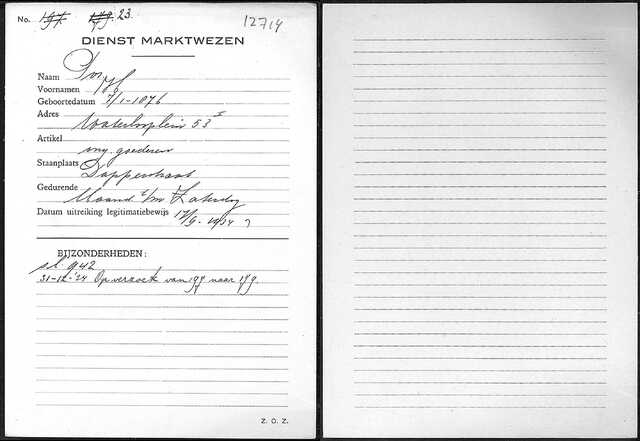 No. 197 179. 23.
12714
DIENST MARKTWEZEN
Naam
Voornamen
Geboortedatum 7/1-1876
Adres Waterlooplein 53 I
Artikel ong. goederen
Staanplaats Dapperstraat
Gedurende Maand t/m Zaterdag
Datum uitreiking legitimatiebewijs 12/9-1934
BIJZONDERHEDEN:
31-12-'24 Op verzoek van 197 naar 179.
Z. O. Z.